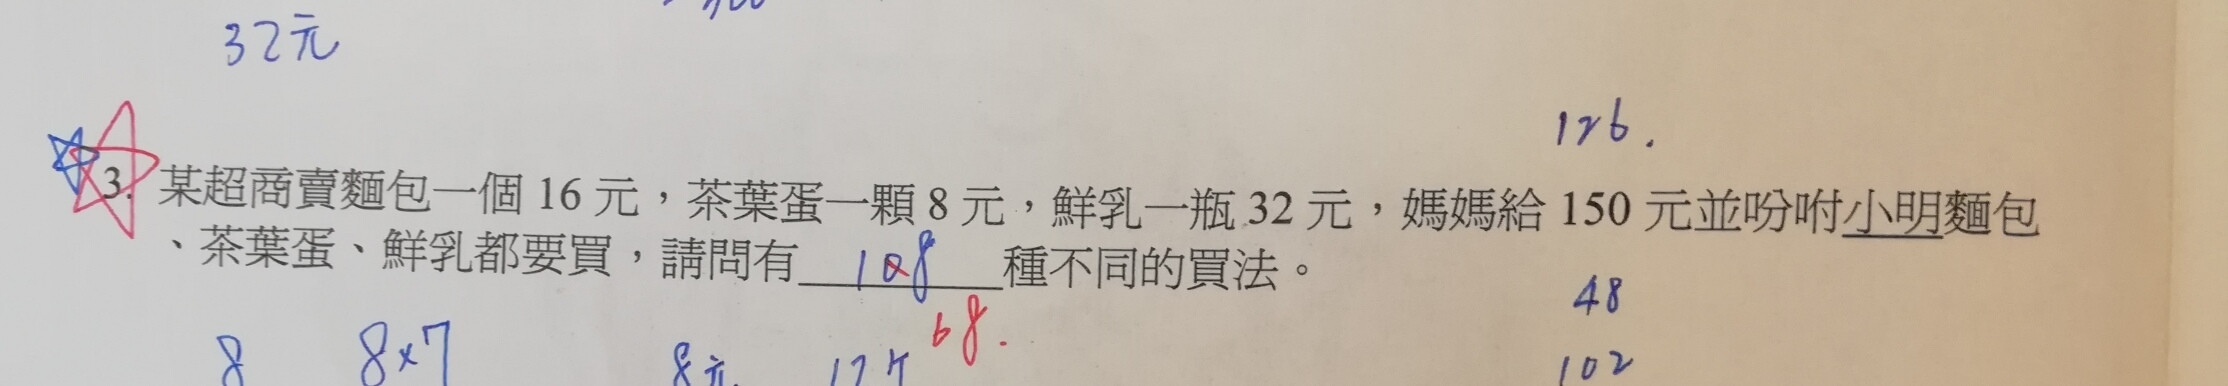 32元
126.
3. 某超商賣麵包一個 16 元，茶葉蛋一顆 8 元，鮮乳一瓶 32 元，媽媽給 150 元並吩咐小明麵包
、茶葉蛋、鮮乳都要買，請問有108種不同的買法。
68.
48
8 8×7 8元
102